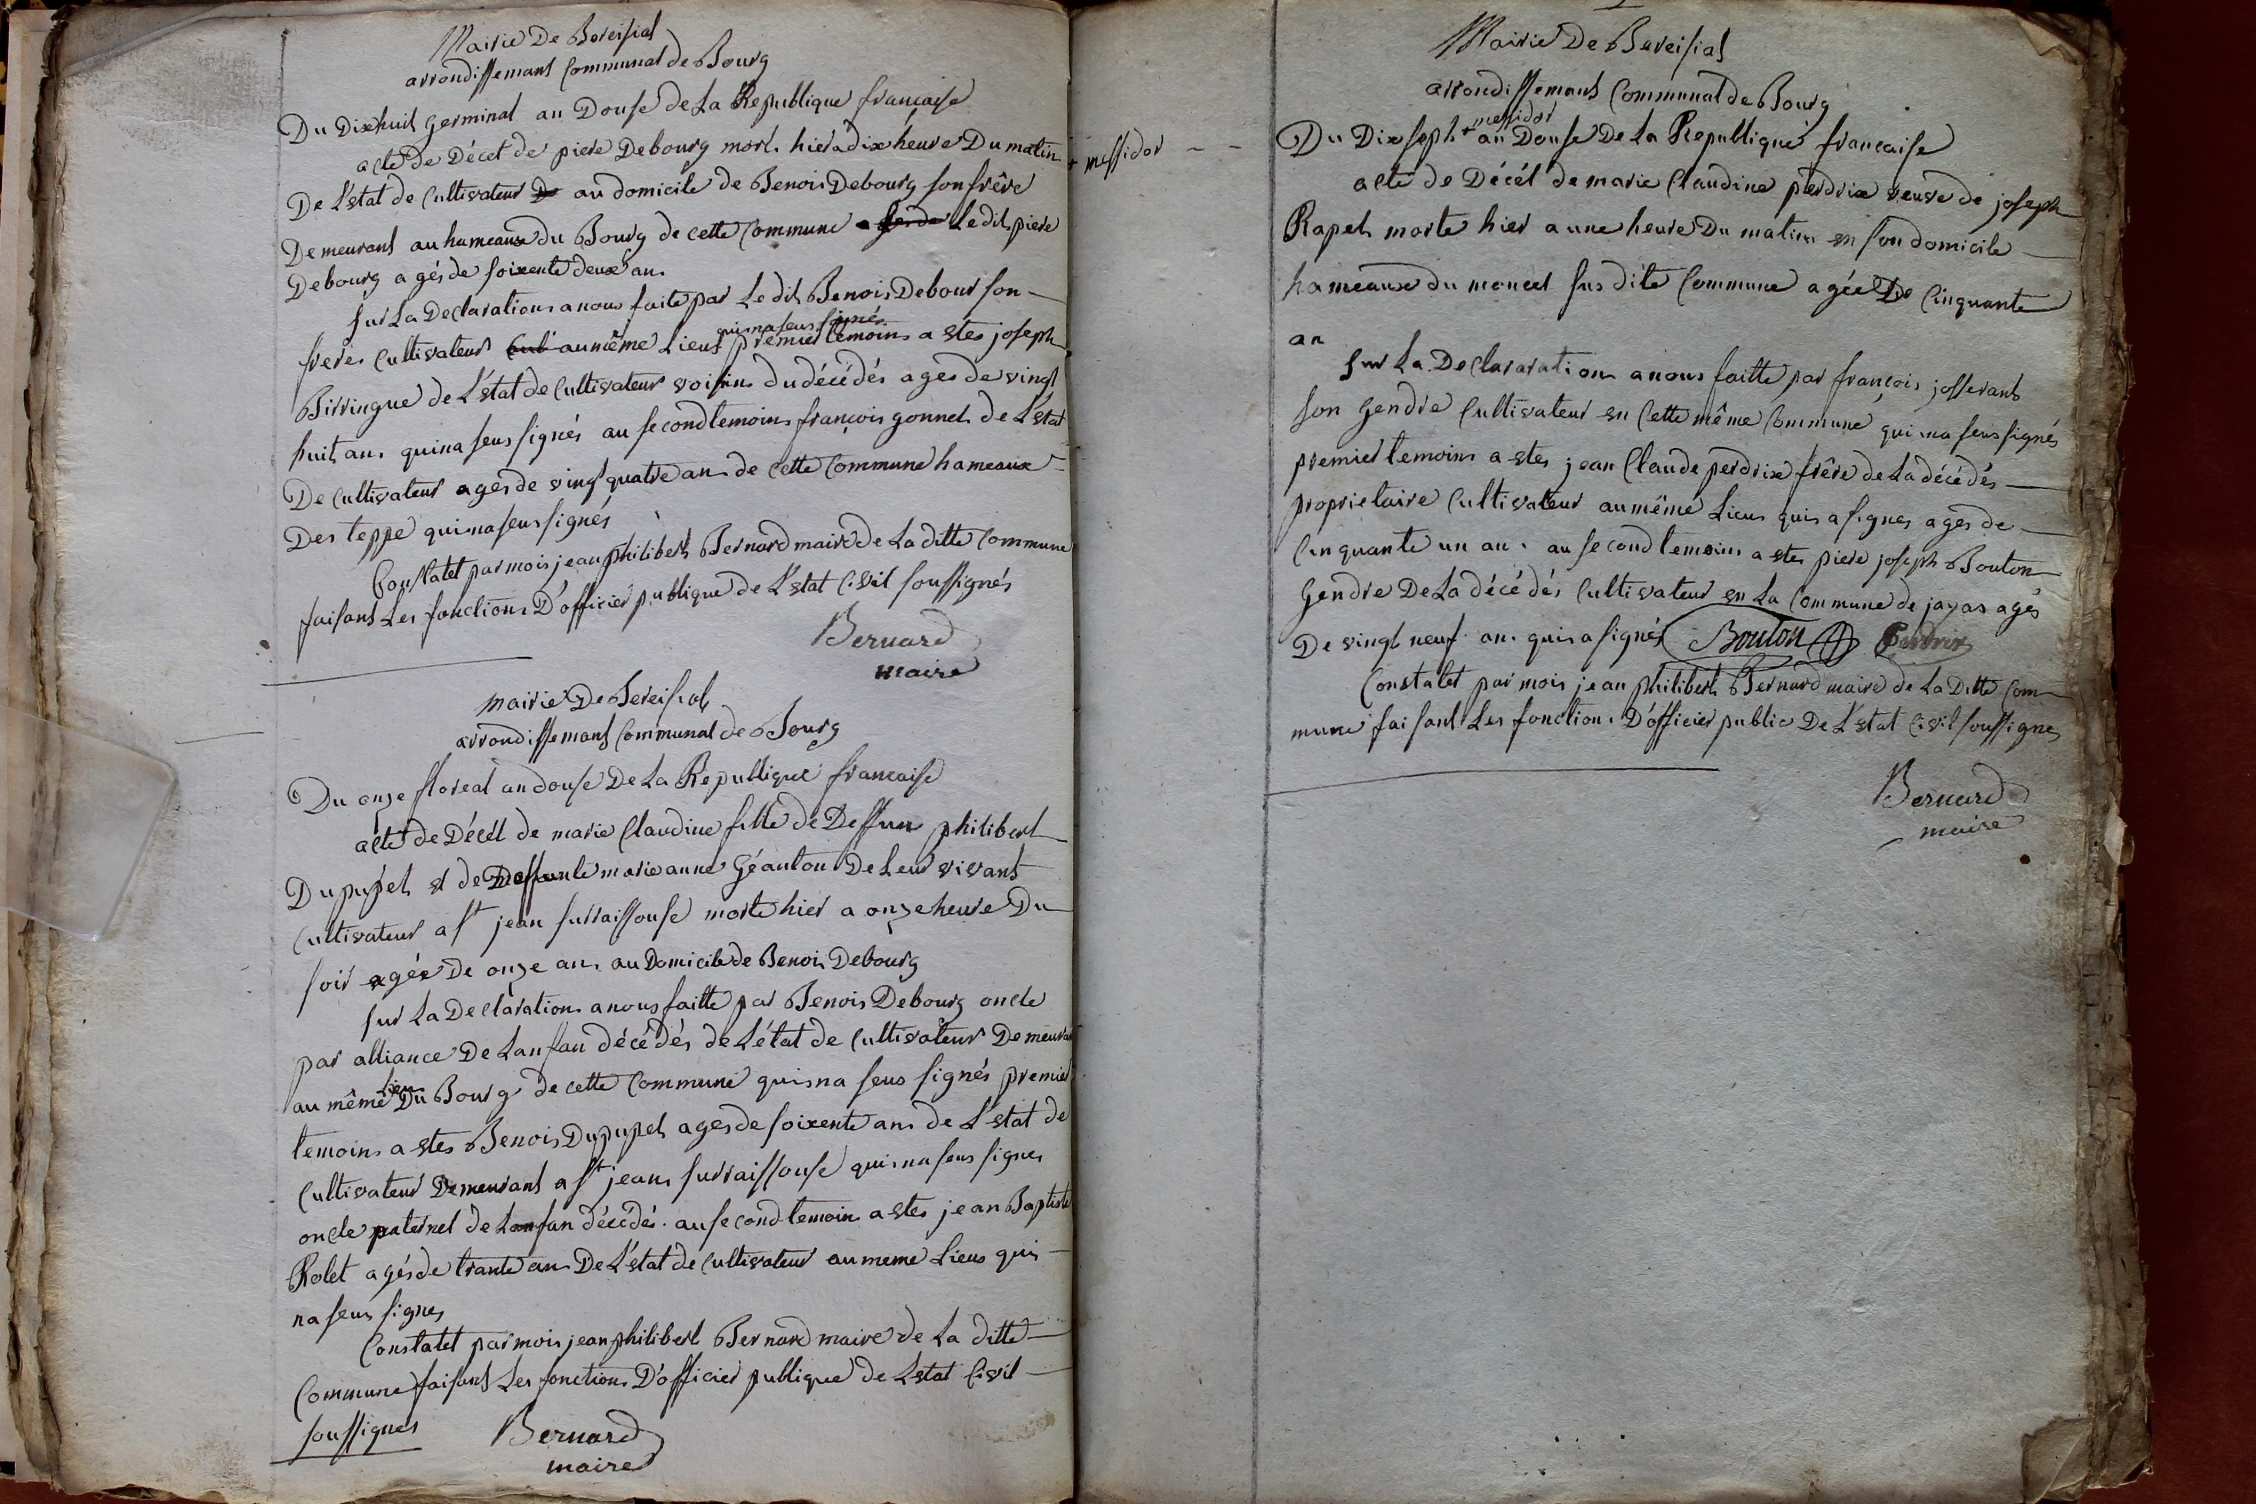 Mairie De Bereisiat
arrondissemant Communal de Bourg
Du Dixhuit germinal an Douse de La Republique française
acte de Décet de piere Debourg mort hier a dix heure Du matin
De L'stat de Cultivateur au domicile de Benois Debourg son frêre
Demeurant au hameaux du Bourg de cette Commune Le dit piere
Debourg agés de soixente deux an
sur La Declaration a nous faite par Le dit Benois Debour son
freres Cultivateur au même Lieus qui na seus signés premier temoins a stes joseph
Birringue de L'stat de Cultivateur voisins du décédés ages de vingt
huit an qui na seus signés au second temoins françois gonnet de L'état
De Cultivateur agés de vingt quatre an de cette Commune hameaux
Des teppe qui na seus signés
Constatet par mois jean philibert Bernard maire de La ditte Commune
faisant Les fonctions D'officier publique de L'stat Civil soussignés
Bernard
maire
mairie De Bereisiat
arrondissemant Communal de Bourg
Du onze floreal an douse De La Republique francaise
acte de Décét de marie Claudine fille de Deffun philibert
Dupupet et de Deffunte marie anne Géanton De Leur vivant
Cultivateur a st jean surraissouse morte hier a onze heure Du
soir agée De onze an au Domicile de Benois Debourg
sur La Declaration a nous faitte par Benois Debourg oncle
par alliance De Lanfan décédés de L'état de Cultivateur Demeurant
au même Lieu Du Bourg de cette Commune quis na seus signés premier
temoins a stes Benois Dupupet ages de soixente an de L'stat de
Cultivateur Demeurant a st jean surraissouse quis na seus signes
oncle paternel de Lanfan décédés au second temoins a stes jean Baptiste
Rolet agés de trante an De L'stat de Cultivateur au meme Lieus quis
na seus signes
Constatet par mois jean philibert Bernard maire de La ditte
Commune faisant Les fonctions D'officier publique de Lstat Civil
soussignes
Bernard
maire
+ messidor
Mairie De Bereisiat
arrondissemant Communal de Bourg
Du Dix sept + messidor an Douse De La Republique francaise
acte de Décét de marie Claudine perdrix veuve de joseph
Rapet morte hier a une heure Du matins en son domicile
hameaux du moncel sus dite Commune agée De Cinquante
an
sur La Declararation a nous faitte par françois josserant
son gendre Cultivateur en Cette même Commune qui na seus signés
premier temoins a stes jean Claude perdrix frêre de La décédés
proprietaire Cultivateur au même Lieus quis a signes ages de
Cinquante un an au second temoins a stes piere joseph Bouton
gendre De La décédés Cultivateur en La Commune de jayas agés
De vingt neuf an quis a signés Bouton Perdrix
Constatet par mois jean philibert Bernard maire de La Ditte Com
mune faisant Les fonction D'officier public De L'stat Civil soussignes
Bernard
maire